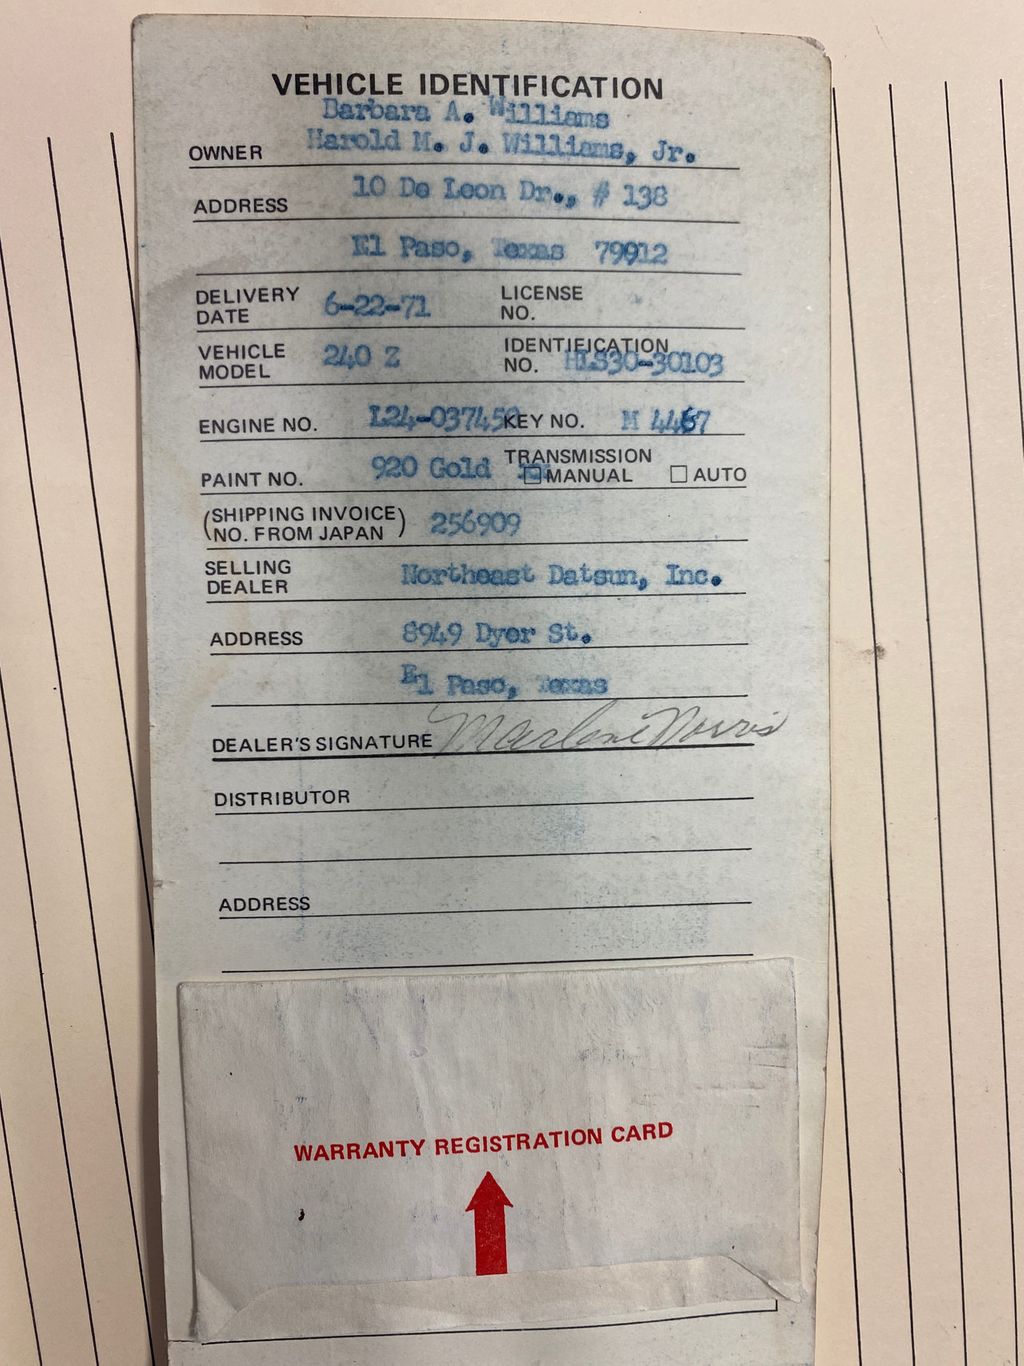 VEHICLE IDENTIFICATION
Barbara A. Williams
OWNER Harold M. J. Williams, Jr.
ADDRESS 10 De Leon Dr., # 138
El Paso, Texas 79912
DELIVERY DATE 6-22-71 LICENSE NO.
VEHICLE MODEL 240 Z IDENTIFICATION NO. HLS30-30103
ENGINE NO. L24-037459 KEY NO. M 4467
PAINT NO. 920 Gold TRANSMISSION MANUAL AUTO
(SHIPPING INVOICE NO. FROM JAPAN) 256909
SELLING DEALER Northeast Datsun, Inc.
ADDRESS 8949 Dyer St.
El Paso, Texas
DEALER'S SIGNATURE Marlene Norris
DISTRIBUTOR
ADDRESS
WARRANTY REGISTRATION CARD